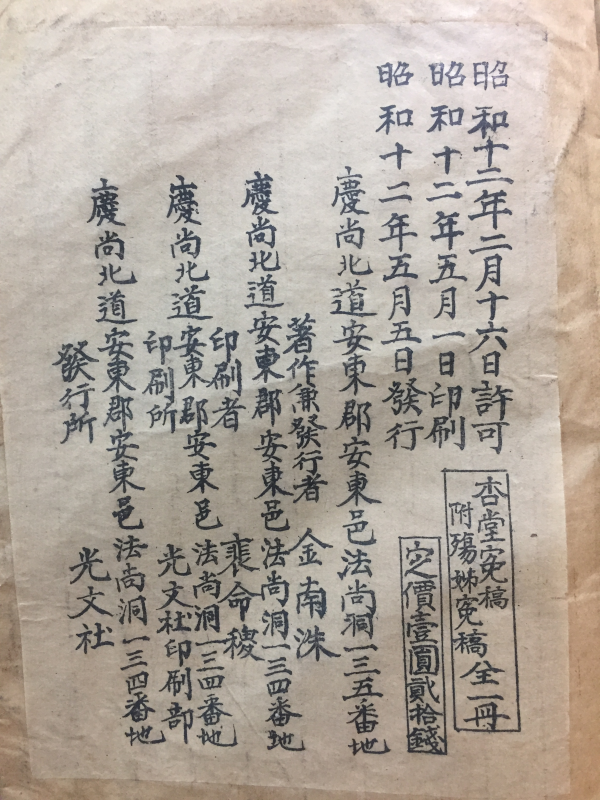 昭和十二年二月十六日許可
昭和十二年五月一日印刷
昭和十二年五月五日發行
杏堂寃稿
附殤姊寃稿全一冊
定價壹圓貳拾錢
慶尚北道安東郡安東邑法尚洞一三五番地
著作兼發行者 金南洙
慶尚北道安東郡安東邑法尚洞一三四番地
印刷者 裵命稷
慶尚北道安東郡安東邑法尚洞一三四番地
印刷所 光文社印刷部
慶尚北道安東郡安東邑法尚洞一三四番地
發行所 光文社